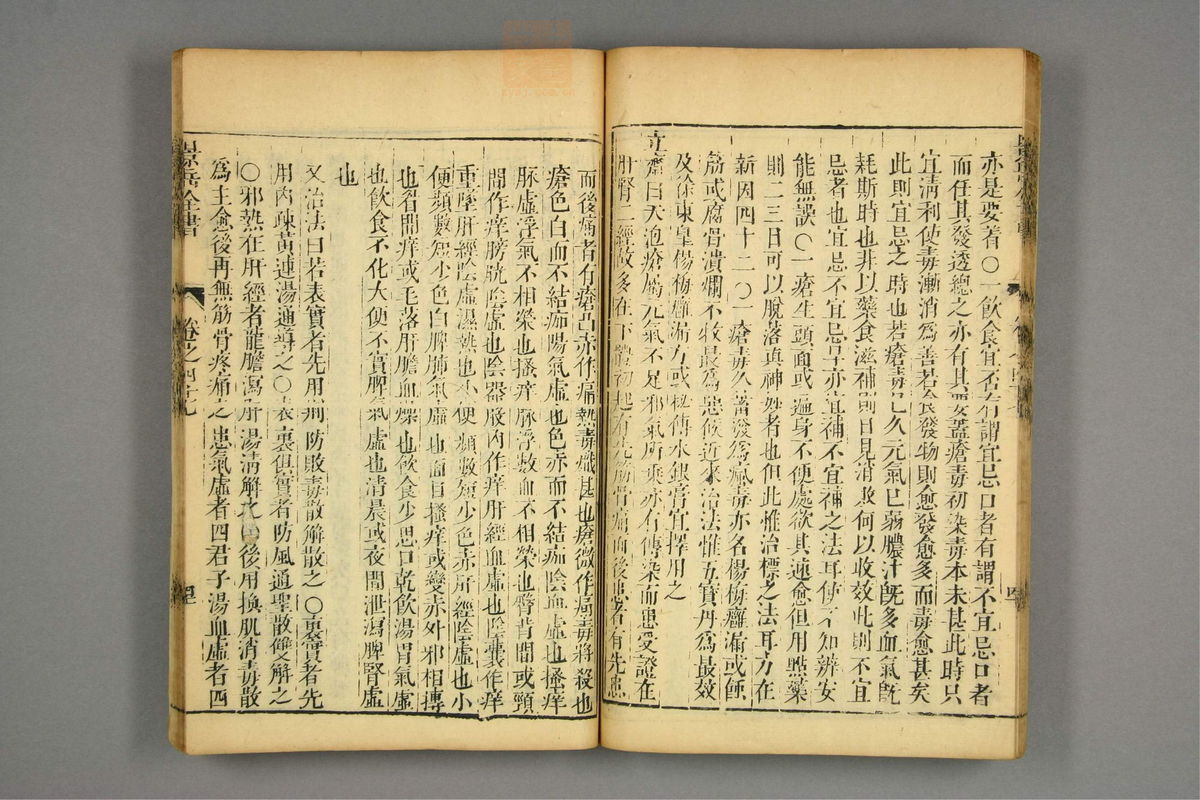 亦是要着○一飲食宜否有謂宜忌口者有謂不宜忌口者
而任其發透總之亦有其要蓋瘡毒初染毒本未甚此時只
宜清利使毒漸消為善若食發物則愈發愈多而毒愈甚矣
此則宜忌之時也若瘡毒已久元氣已弱膿汁既多血氣既
耗斯時也非以藥食滋補則日見消敗何以收效此則不宜
忌者也宜忌不宜忌早亦宜補不宜補之法耳使不知辨安
能無誤○一瘡生頭面或遍身不便處欲其速愈但用點藥
則二三日可以脫落真神妙者也但此惟治標之法耳方在
新因四十二○一瘡毒久蓄發為瘋毒亦名楊梅癰漏或蝕
筋或腐骨潰爛不收最為惡候近來治法惟五寶丹為最效
及徐東皇楊梅癰漏方或秘傳水銀膏宜擇用之
立齋曰天泡瘡屬元氣不足邪氣所乘亦有傳染而患受證在
肝腎二經故多在下體初起有先筋骨痛而後患者有先患
而後痛者有瘡凸赤作痛熱毒熾甚也瘡微作痛毒將殺也
瘡色白而不結痂陽氣虛也色赤而不結痂陰血虛也搔痒
脉虛浮氣不相榮也搔痒脉浮數血不相榮也臂背間或頸
間作痒膀胱陰虛也陰器股內作痒肝經血虛也陰囊作痒
重墜肝經陰虛濕熱也小便頻數短少色赤肝經陰虛也小
便頻數短少色白脾肺氣虛也面目搔痒或變赤外邪相摶
也眉間痒或毛落肝膽血燥也飲食少思口乾飲湯胃氣虛
也飲食不化大便不實脾氣虛也清晨或夜間泄瀉脾腎虛
也
又治法曰若表實者先用荊防敗毒散解散之○裏實者先
用內疎黃連湯通導之○表裏俱實者防風通聖散雙解之
○邪熱在肝經者龍膽瀉肝湯清解之後用換肌消毒散
為主愈後再無筋骨疼痛之患氣虛者四君子湯血虛者四
景岳全書
卷之四十七